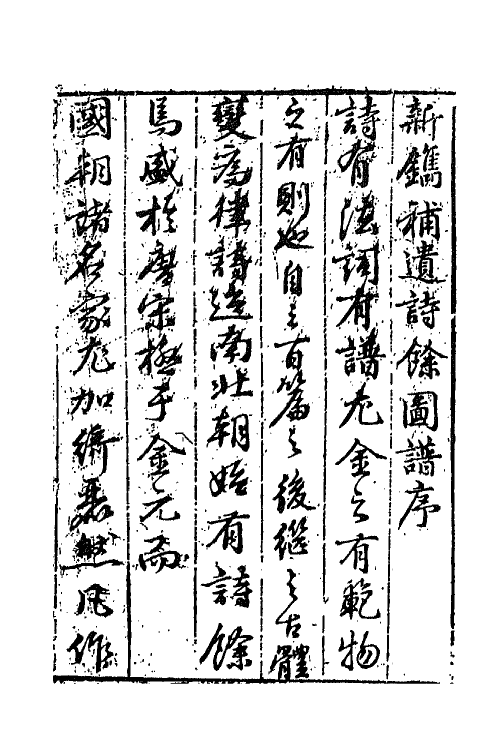 新鐫補遺詩餘圖譜序
詩有法詞有譜尤金之有範物
之有則也自三百篇之後繼之古體
變為律詩迨南北朝始有詩餘
焉盛於唐宋極于金元而
國朝諸名家尤加綺麗然凡作